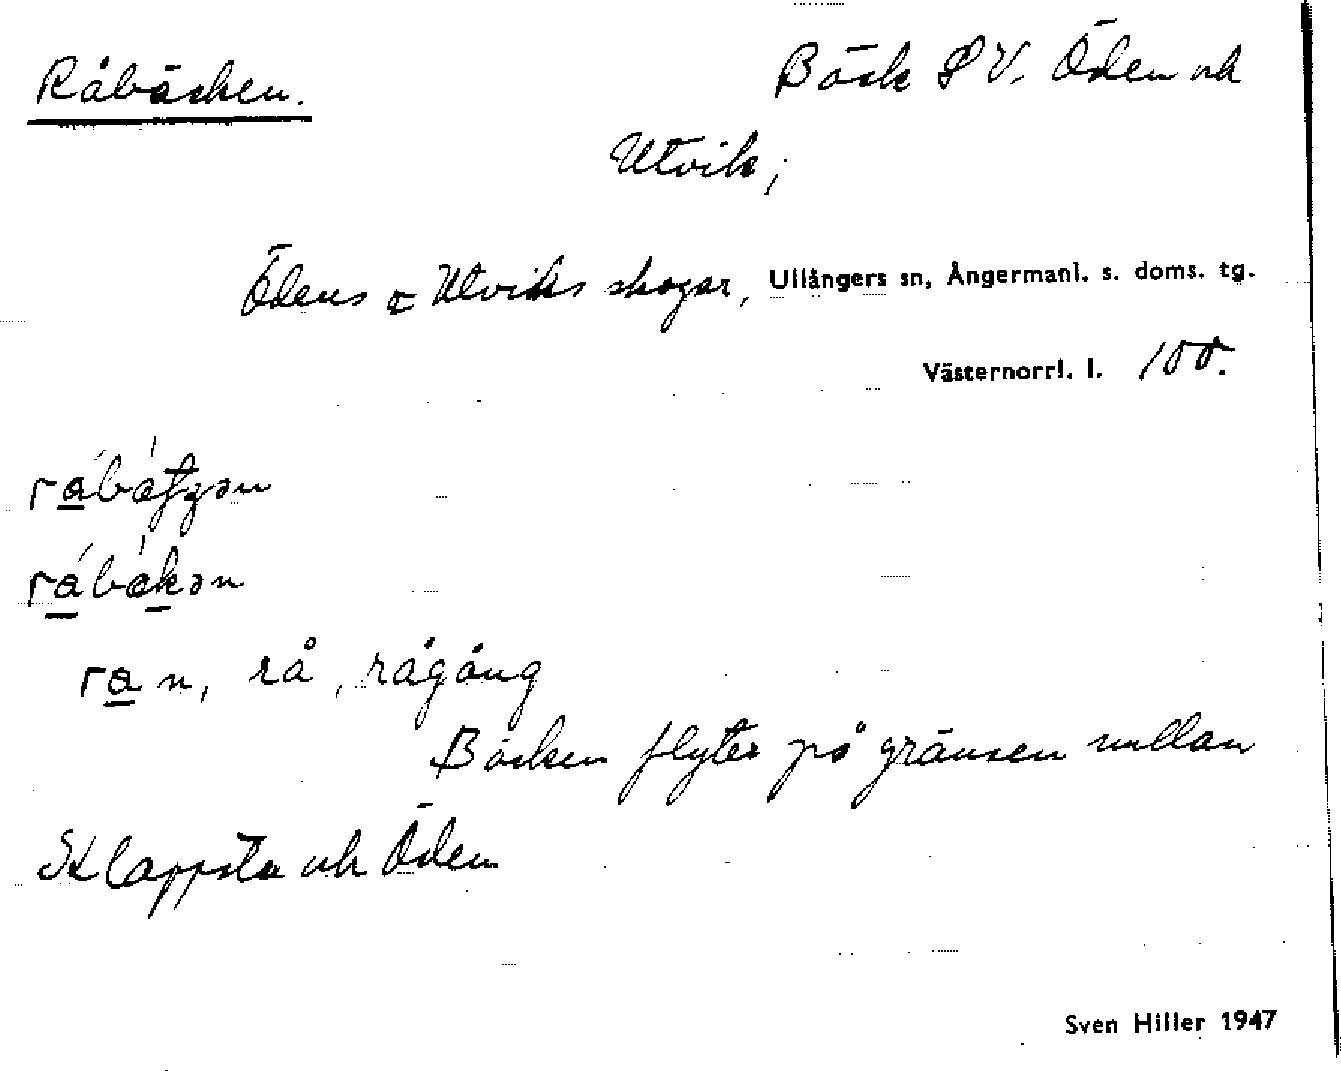 Råbäcken.
Bäck S V. Öden och
Utvik,
Ödens o Utviks skogar, Ullångers sn, Ångermanl. s. doms. tg.
Västernorrl. l. 100.
ra n, rå, rågång
Bäcken flyter på gränsen mellan
Klappsta och Öden
Sven Hiller 1947